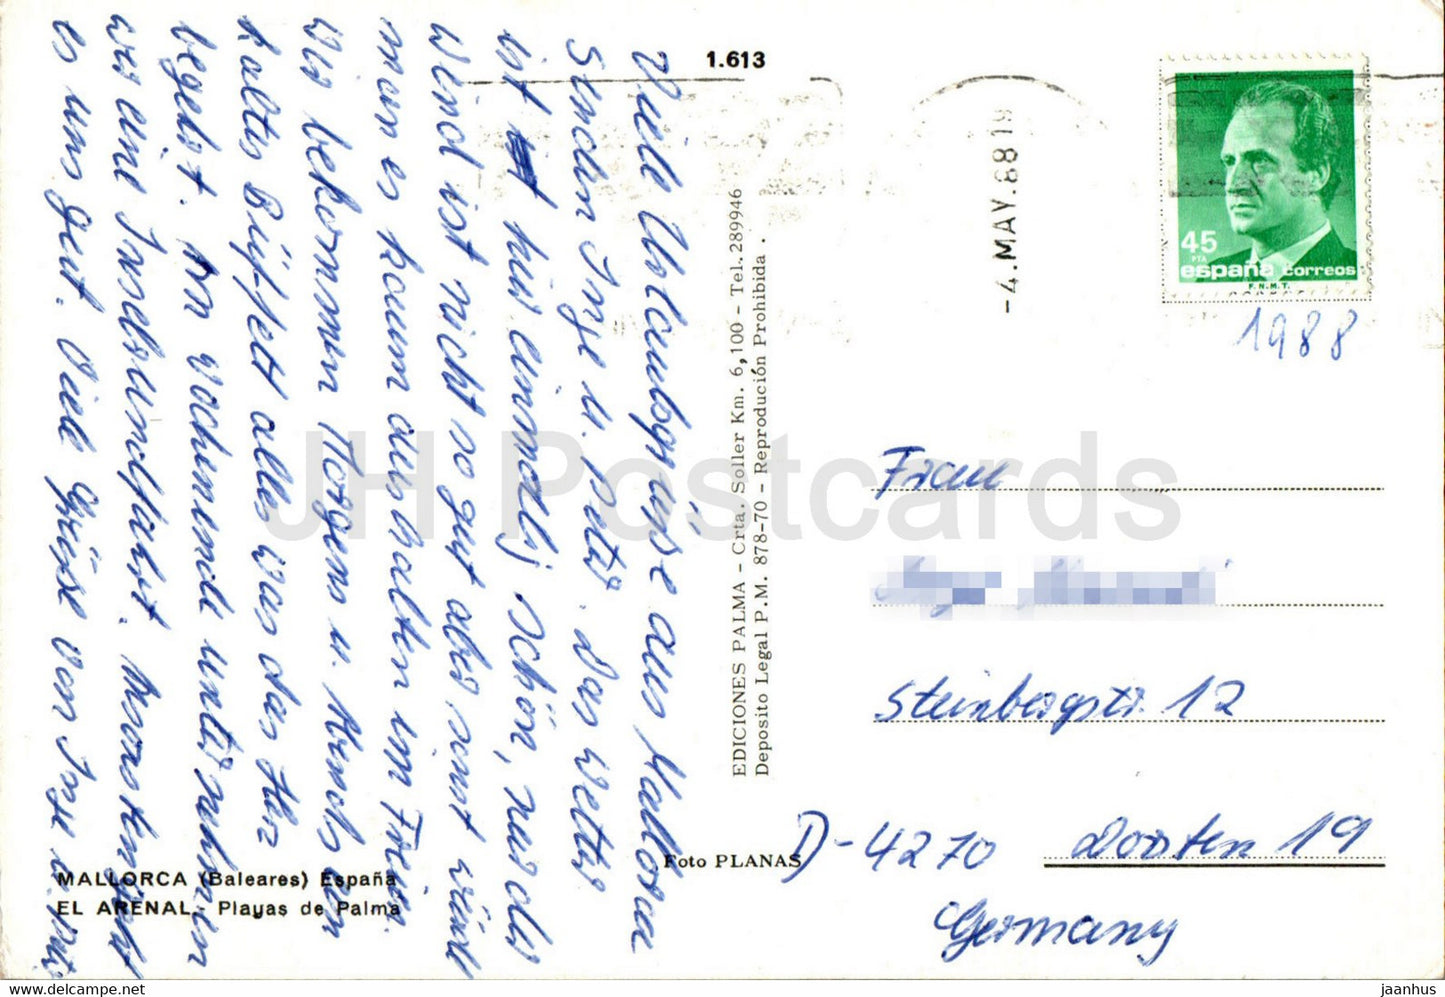 1.613
Viele Urlaubsgrüsse aus Mallorca
senden Inge u. Peter. Das Wetter
ist hier einmalig schön, nur der
Wind ist nicht so gut aber sonst würde
man es kaum aushalten im Freien.
Wir bekommen Morgens u. Abends ein
kaltes Büffett alles was das Herz
begehrt. Am Wochenende unternahmen
wir eine Inselrundfahrt. Ansonsten geht
es uns gut. Viele Grüsse von Inge u. Peter
EDICIONES PALMA - Crta. Soller Km. 6,100 - Tel. 289946
Deposito Legal P.M. 878-70 - Reproducción Prohibida.
-4.MAY.88 19
45
PTA
españa correos
F.N.M.T.
1988
Frau
Steinbergstr. 12
D-4270 Dorsten 19
Germany
Foto PLANAS
MALLORCA (Baleares) España
EL ARENAL.- Playas de Palma
JH Postcards
www.delcampe.net
jaanhus